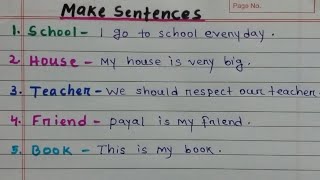 Page No.
Make Sentences
1. School - I go to school everyday.
2. House - My house is very big.
3. Teacher - We should respect our teacher.
4. Friend - payal is my friend.
5. Book - This is my book.